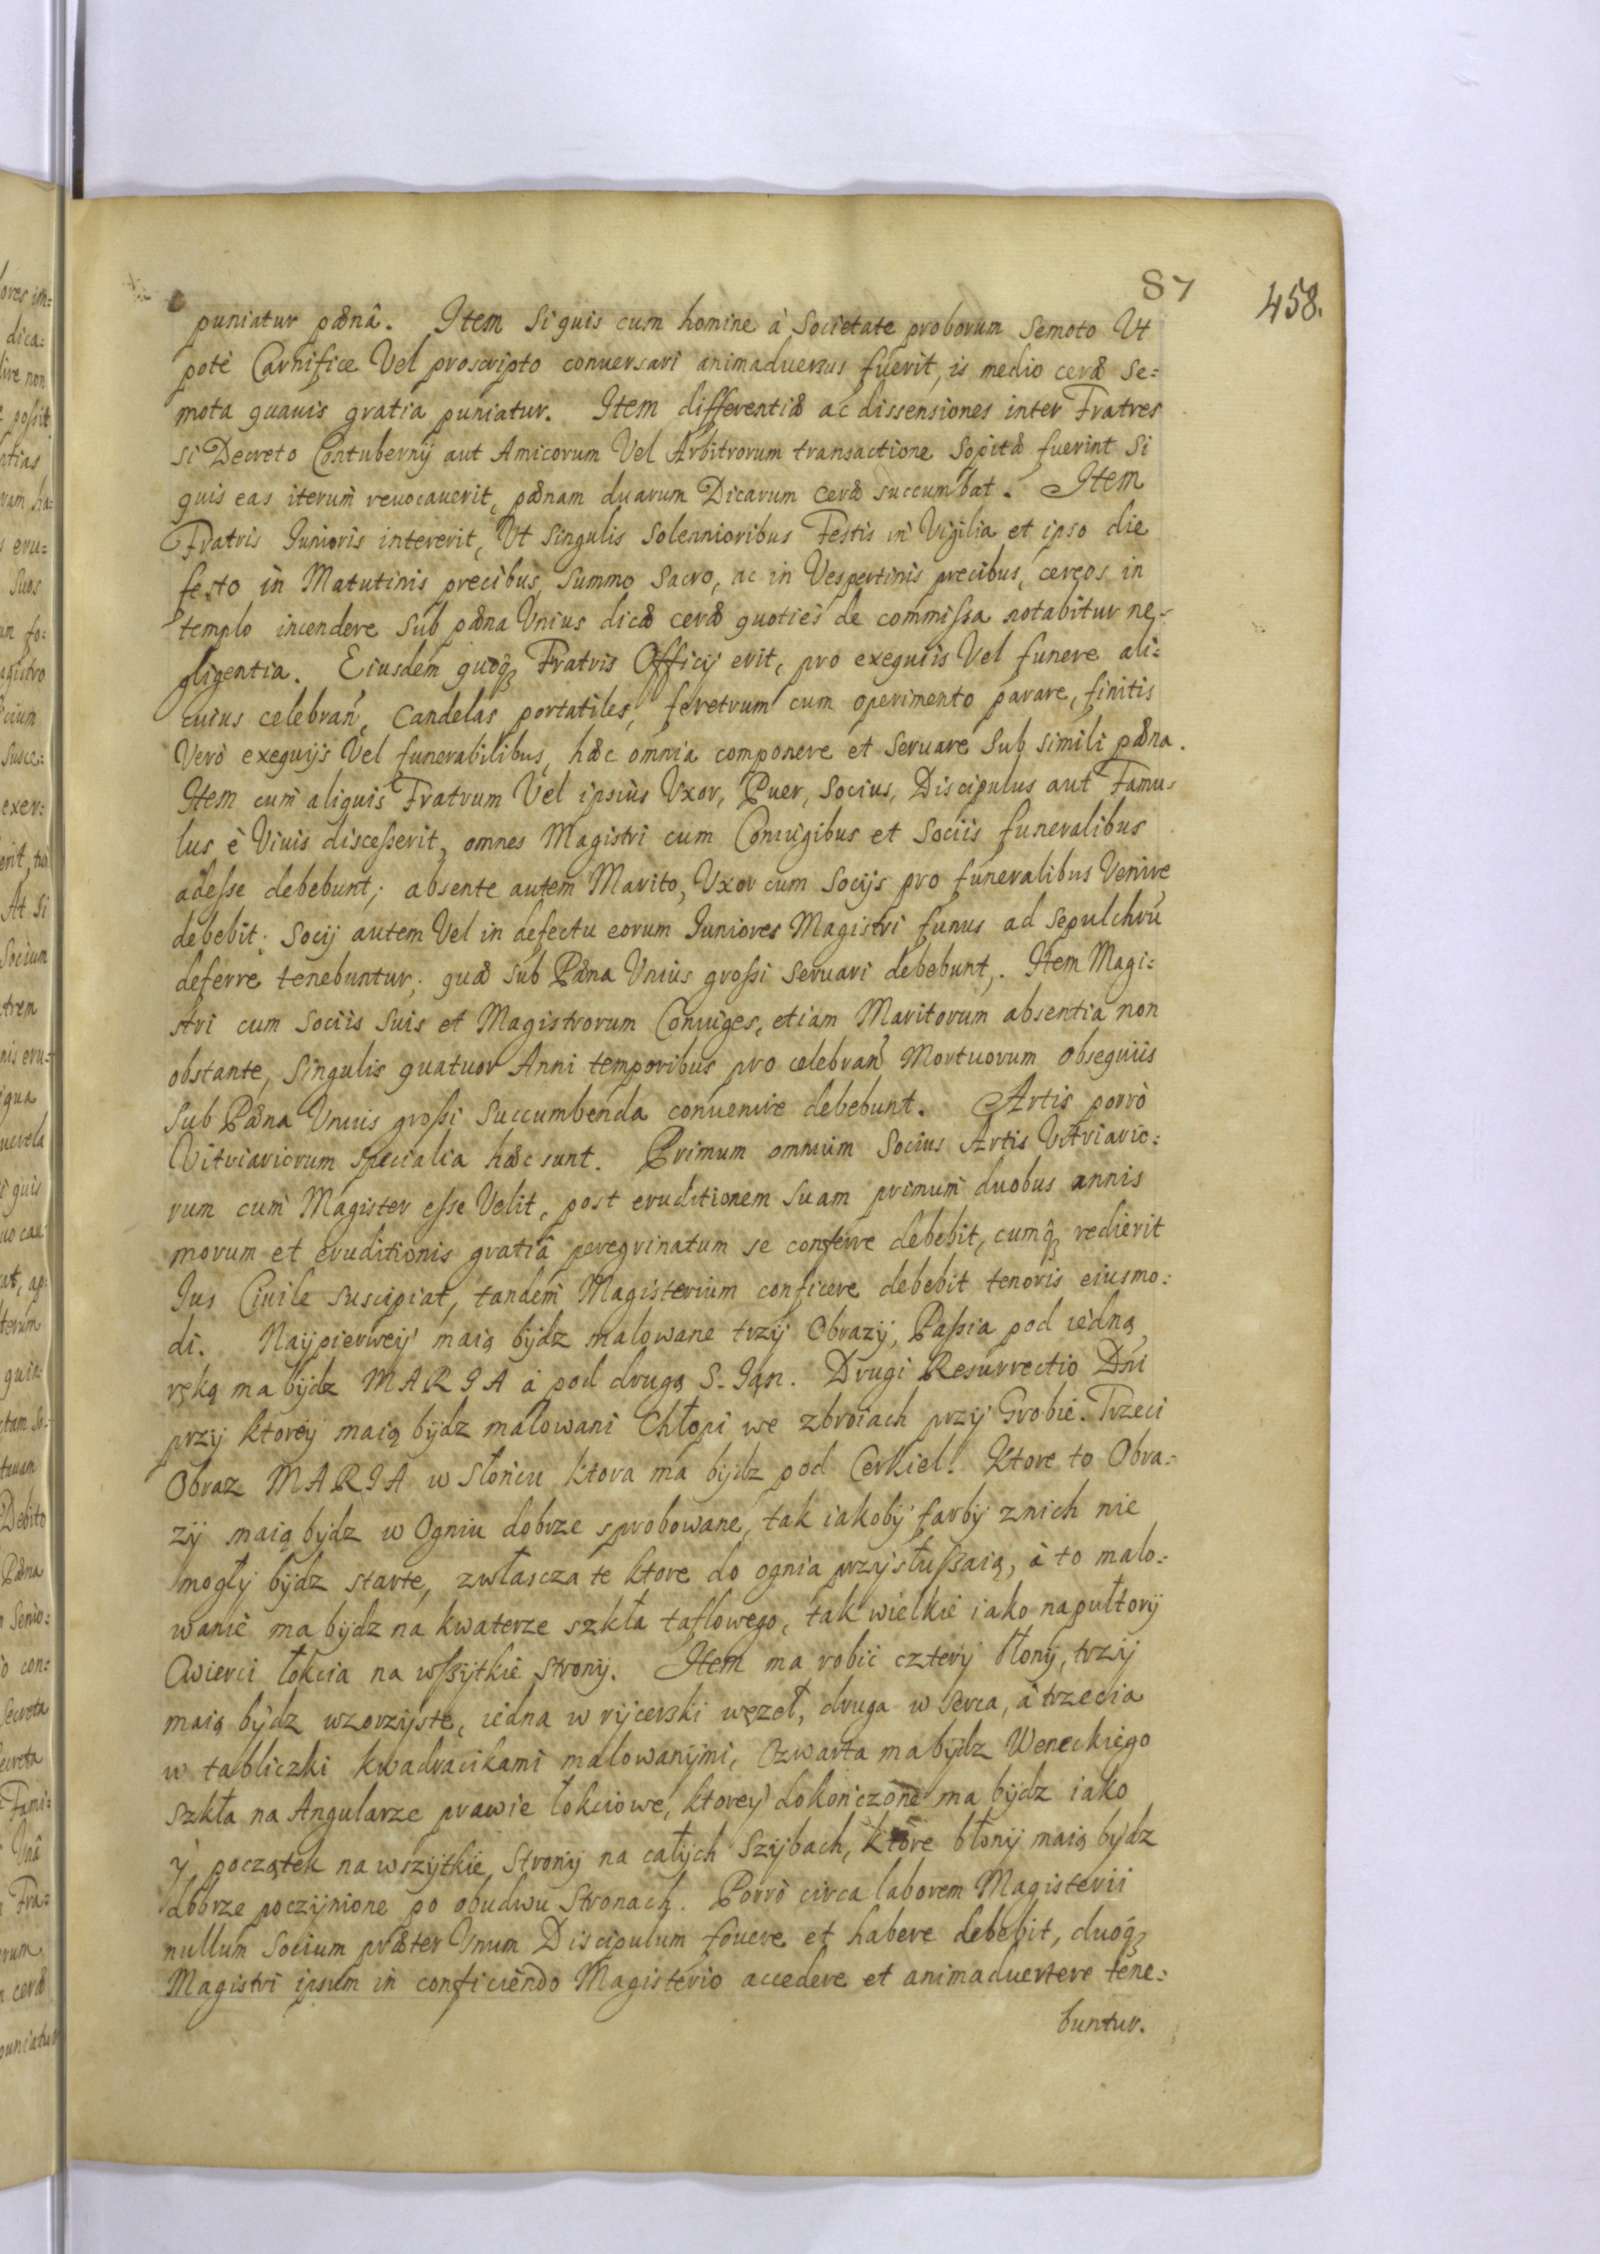 87
458.
puniatur pænâ. Item Si quis cum homine à Societate proborum Semoto Ut
poté Carnifice Vel proscripto conversari animaduersus fuerit, is medio ceræ Se=
mota quauis gratia puniatur. Item differentiæ ac dissensiones inter Fratres
Si Decreto Contubernij aut Amicorum Vel Arbitrorum transactione Sopitæ fuerint Si
quis eas iterum reuocauerit, pænam duarum Dicarum ceræ Succumbat. Item
Fratris Iunioris intererit, Ut Singulis Solennioribus Festis in Vigilia et ipso die
festo in Matutinis precibus, Summo Sacro, ac in Vespertinis precibus, cereos in
templo incendere Sub pæna Unius dicæ ceræ quoties de commissa notabitur ne=
gligentia. Eiusdem quoq₃ Fratris Officij erit, pro exequiis Vel funere ali=
cuius celebran, Candelas portatiles, feretrum cum operimento parare, finitis
Verò exequijs Vel funerabilibus, hæc omnia componere et Seruare Sub simili pæna.
Item cum aliquis Fratrum Vel ipsius Uxor, Puer, Socius, Discipulus aut Famu=
lus è Viuis discesserit, omnes Magistri cum Coniugibus et Sociis funeralibus
adesse debebunt; absente autem Marito, Uxor cum Socijs pro funeralibus Venire
debebit; Socij autem Vel in defectu eorum Iuniores Magistri funus ad Sepulchrū
deferre tenebuntur; quæ sub Pæna Unius grossi Seruari debebunt. Item Magi=
stri cum Sociis Suis et Magistrorum Coniuges, etiam Maritorum absentia non
obstante, Singulis quatuor Anni temporibus pro celebran Mortuorum obsequiis
Sub Pæna Unius grossi Succumbenda conuenire debebunt. Artis porrò
Vitriariorum Specialia hæc sunt. Primum omnium Socius Artis Vitriario=
rum cum Magister esse Velit, post eruditionem Suam primum duobus annis
morum et eruditionis gratiâ peregrinatum se conferre debebit, cumq₃ redierit
Ius Ciuile suscipiat, tandem Magisterium conficere debebit tenoris eiusmo=
di. Naypierwey maią bydz malowane trzy Obrazy, Passia pod iedną
ręką ma bydz MARIA á pod drugą S. Ian. Drugi Resurrectio Dni
przy ktorey maią bydz malowani Chłopi we zbroiach przy Grobie. Trzeci
Obraz MARIA w Słońcu ktora ma bydz pod Cerkiel. Ktore to Obra=
zy maią bydz w Ogniu dobrze sprobowane, tak iakoby farby znich nie
mogły bydz starte, zwłascza te ktore do ognia przysłuszaią, á to malo=
wanie ma bydz na kwaterze szkła taflowego, tak wielkie iako napułtory
Cwierci łokcia na wszytkie strony. Item ma robic cztery błony, trzy
maią bydz wzorzyste, iedna w rycerski węzeł, druga w serca, á trzecia
w tabliczki kwadracikami malowanymi, Czwarta ma bydz Weneckiego
szkła na Angularze prawie łokciowe, ktorey dokończone ma bydz iako
y początek na wszytkie Strony na całych Szybach, które błony maią bydz
dobrze poczynione po obudwu Stronach. Porrò circa laborem Magisterii
nullum Socium præter Unum Discipulum fouere et habere debebit, duoq₃
Magistri ipsum in conficiendo Magisterio accedere et animaduertere tene=
buntur.